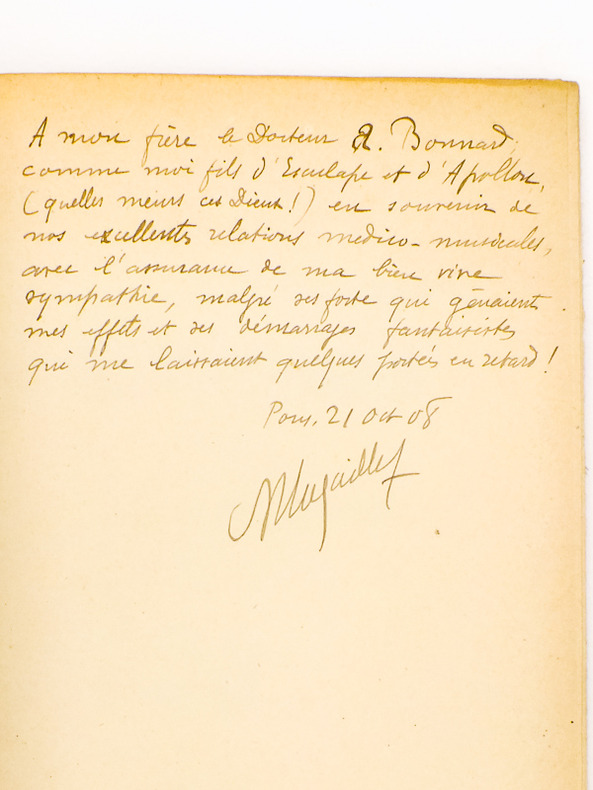 A mon frère le Docteur R. Bonnard,
comme moi fils d'Esculape et d'Apollon,
(quelles mœurs ces Dieux!) en souvenir de
nos excellentes relations medico-musicales,
avec l'assurance de ma bien vive
sympathie, malgré ses forte qui gênaient
mes effets et ses démarrages fantaisistes
qui me laissaient quelques portées en retard!
Pons, 21 Oct 08